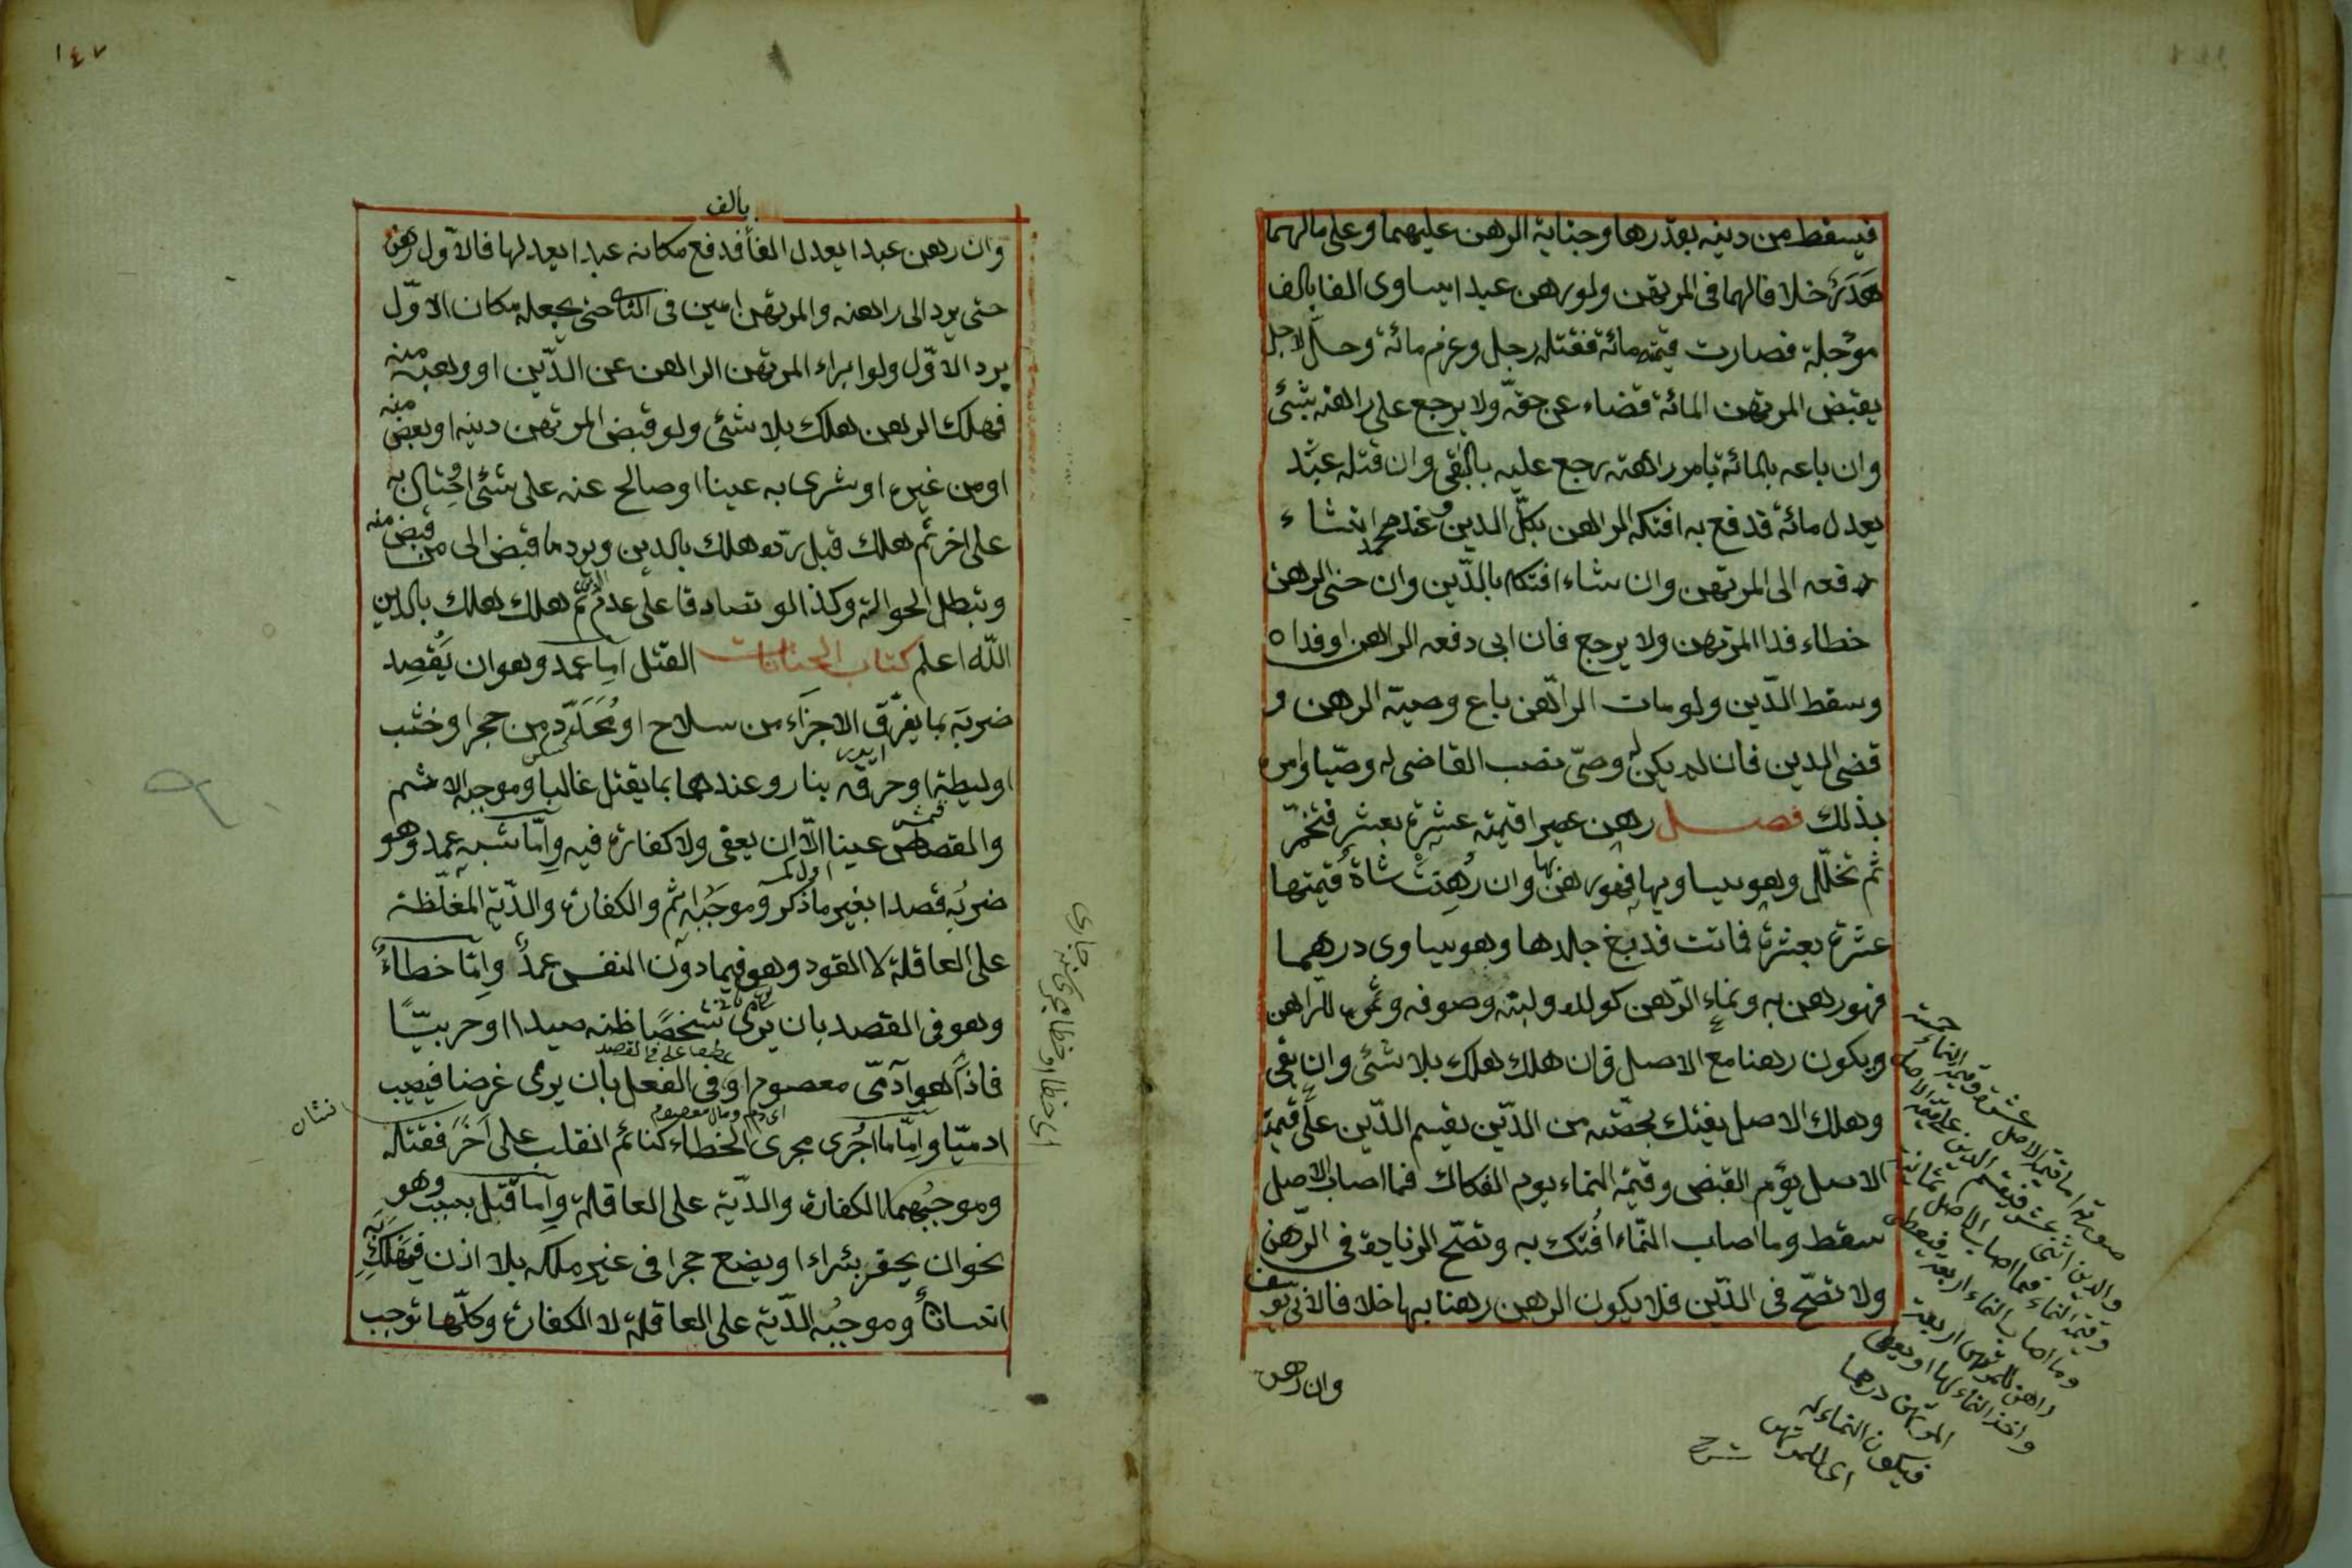 فيسقط من دينه بقدرها وجناية الرهن عليهما وعلى مالهما
هَدَرٌ خلافا لهما في المرتهن ولو رهن عبدا يساوى الفا بالف
مؤجلة فصارت قيمته مائة فقتله رجل وغرم مائة وحلّ الاجل
يقبض المرتهن المائة قضاء عن حقّه ولا يرجع على راهنه بشئ
وان باعه بالمائة بامر راهنه رجع عليه بالباقى وان قتله عبْد
يعدل مائة فدفع به افتكه الراهن بكلّ الدين وعند محمد ان شاء
دفعه الى المرتهن وان شاء افتكه بالدّين وان جنى الرهن
خطاء فداه المرتهن ولا يرجع فان ابى دفعه الراهن او فداه
وسقط الدّين ولو مات الرّاهن باع وصيّه الرهن و
قضى الدين فان لم يكن له وصىّ نصب القاضى له وصيّا وامره
بذلك فصل رهن عصيرا قيمته عشرة بعشرة فتخمّر
ثم تخلّل وهو يساويها فهو رهن بها وان رُهنت شاةٌ قيمتها
عشرة بعشرة فماتت فدبغ جلدها وهو يساوى درهما
فهو رهن به ونماء الرّهن كولده ولبنه وصوفه وثمره للرّاهن
ويكون رهنا مع الاصل فان هلك هلك بلا شئ وان بقى
وهلك الاصل يفتك بحصّته من الدّين يقسم الدّين على قيمة
الاصل يوم القبض وقيمة النماء يوم الفكاك فما اصاب الاصل
سقط وما اصاب النّماء افْتك به وتصّح الزيادة فى الرّهن
ولا تصّح فى الدّين فلا يكون الرهن رهنا بها خلافا لابى يوسف
وان رهن
صورته اما قيمة الاصل عشرة وقيمة النماء خمسة
والدين اثنى عشر فيقسم الدين على قيمة الاصل
وقيمة النماء فما اصاب الاصل ثمانية
وما اصاب النماء اربعة فيعطى
راهن للمرتهن اربعة
واخذ النماء
المرتهن درهما
فيكون النماء له
اى للمرتهن
شرح
١٤٧
بالف
وان رهن عبدا يعدل الفاً فدفع مكانه عبدا يعدلها فالاوّل رهن
حتى يرد الى راهنه والمرتهن امين فى الثانى حتى يجعله مكان الاوّل
يرد الاوّل ولو ابراء المرتهن الراهن عن الدّين او وهبه منه
فهلك الرهن هلك بلا شئ ولو قبض المرتهن دينه او بعضه منه
او من غيره او شرى به عينا او صالح عنه على شئ او احْتال به
على اخر ثم هلك قبل ردّه هلك بالدين ويرد ما قبض الى من قبض منه
وتبطل الحوالة وكذا لو تصادقا على عدم الدين ثم هلك هلك بالدين
الله اعلم كتاب الجنايات القتل اما عمد وهو ان يَقْصِد
ضربَه بما يفرّق الاجزاء من سلاح او مُحَدّد من حجر او خشب
او ليطة او حرقه بنار وعندهما بما يقتل غالبا وموجبه الاثم
والقصاص عينا الّا ان يعفى ولا كفارة فيه وامّا شبه عمد وهو
ضربُه قصدا بغير ما ذكر وموجَبه اثم والكفارة والدّية المغلّظة
على العاقلة لا القود وهو فيما دون النفس عمدٌ وامّا خطاءٌ
وهو فى القصد بان يرمى شخصًا ظنه صيدا او حربيّا
عطف على فى القصد
فاذا هو آدمّى معصوم او فى الفعل بان يرمى غرضا فيصيب
نشان
ادميّا وامّا ما اجْرى مجرى الخطاء كنائم انقلب على آخر فقتله
وموجبُهما الكفارة والدّية على العاقلة وامّا قتل بسبب وهو
نحو ان يحفر بئرا او يضع حجرا فى غير ملكه بلا اذن فيهلك به
انسانٌ وموجبُه الدّية على العاقلة لا الكفارة وكلّها توجب